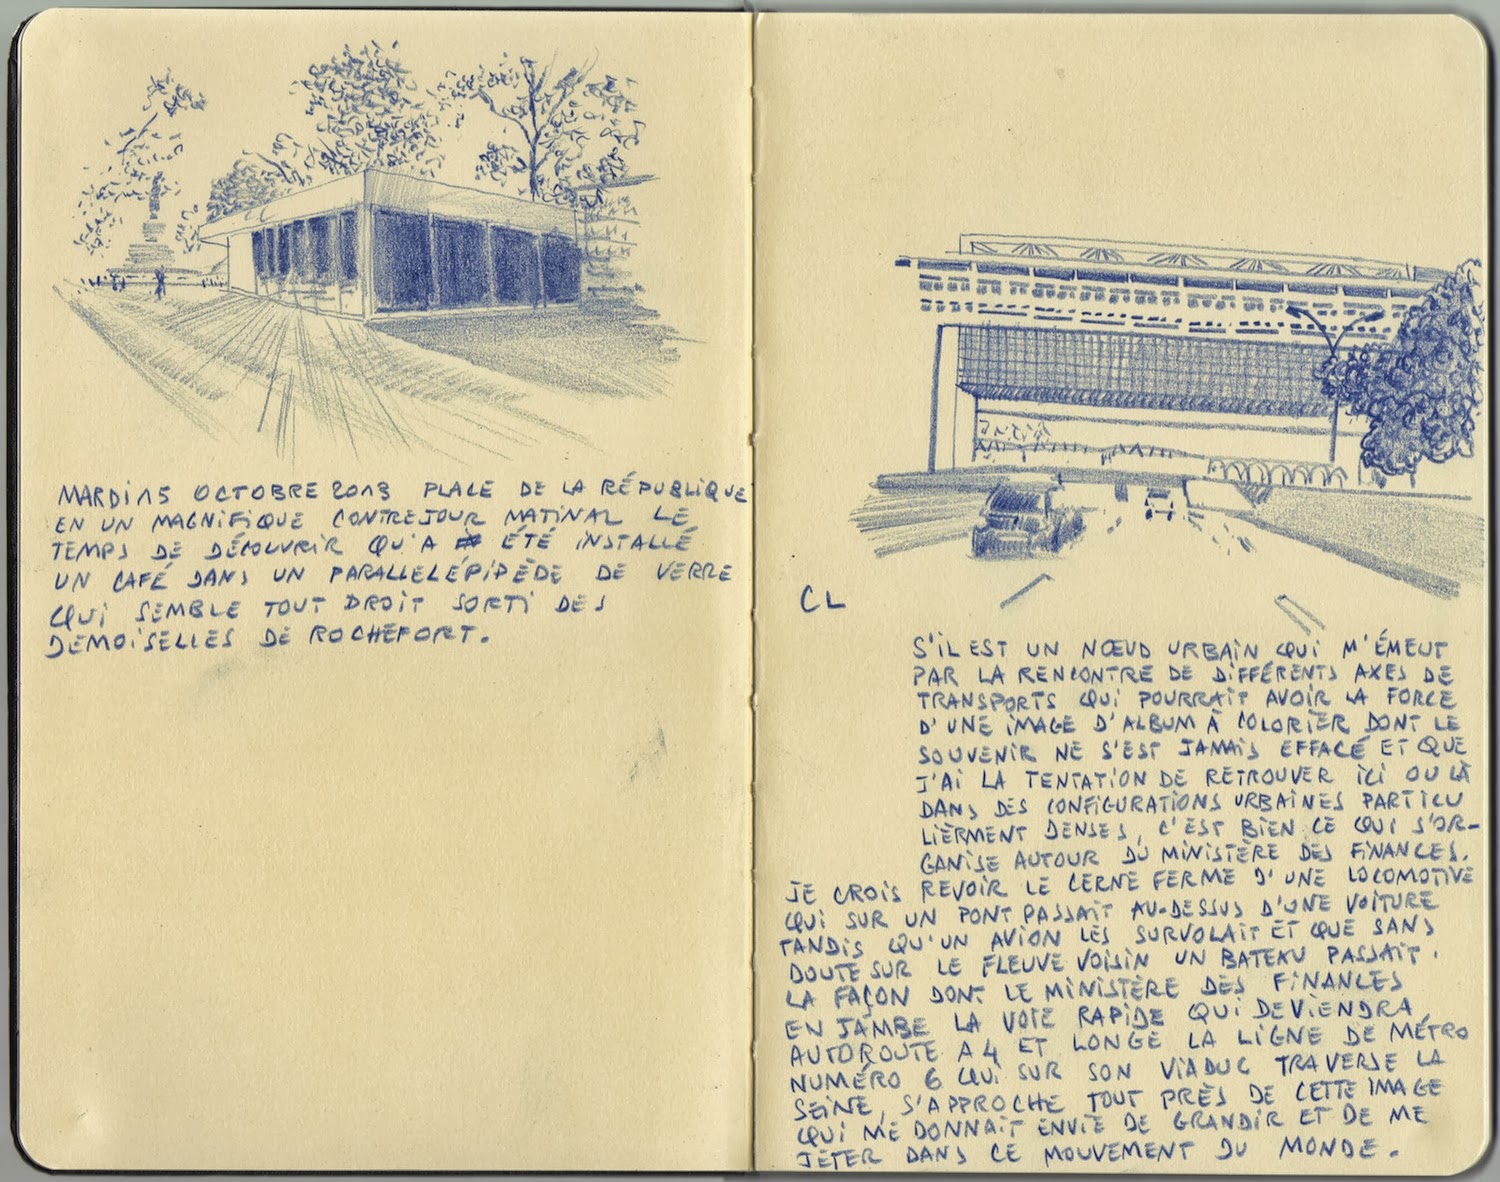 MARDI 15 OCTOBRE 2013 PLACE DE LA RÉPUBLIQUE
EN UN MAGNIFIQUE CONTREJOUR MATINAL LE
TEMPS DE DÉCOUVRIR QU'A ÉTÉ INSTALLÉ
UN CAFÉ DANS UN PARALLELÉPIPÈDE DE VERRE
QUI SEMBLE TOUT DROIT SORTI DES
DEMOISELLES DE ROCHEFORT.
CL
S'IL EST UN NŒUD URBAIN QUI M'ÉMEUT
PAR LA RENCONTRE DE DIFFÉRENTS AXES DE
TRANSPORTS QUI POURRAIT AVOIR LA FORCE
D'UNE IMAGE D'ALBUM À COLORIER DONT LE
SOUVENIR NE S'EST JAMAIS EFFACÉ ET QUE
J'AI LA TENTATION DE RETROUVER ICI OU LÀ
DANS DES CONFIGURATIONS URBAINES PARTICU
LIÈRMENT DENSES, C'EST BIEN CE QUI S'OR-
GANISE AUTOUR DU MINISTÈRE DES FINANCES.
JE CROIS REVOIR LE CERNE FERME D'UNE LOCOMOTIVE
QUI SUR UN PONT PASSAIT AU-DESSUS D'UNE VOITURE
TANDIS QU'UN AVION LES SURVOLAIT ET QUE SANS
DOUTE SUR LE FLEUVE VOISIN UN BATEAU PASSAIT.
LA FAÇON DONT LE MINISTÈRE DES FINANCES
ENJAMBE LA VOIE RAPIDE QUI DEVIENDRA
AUTOROUTE A4 ET LONGE LA LIGNE DE MÉTRO
NUMÉRO 6 QUI SUR SON VIADUC TRAVERSE LA
SEINE, S'APPROCHE TOUT PRÈS DE CETTE IMAGE
QUI ME DONNAIT ENVIE DE GRANDIR ET DE ME
JETER DANS CE MOUVEMENT DU MONDE.